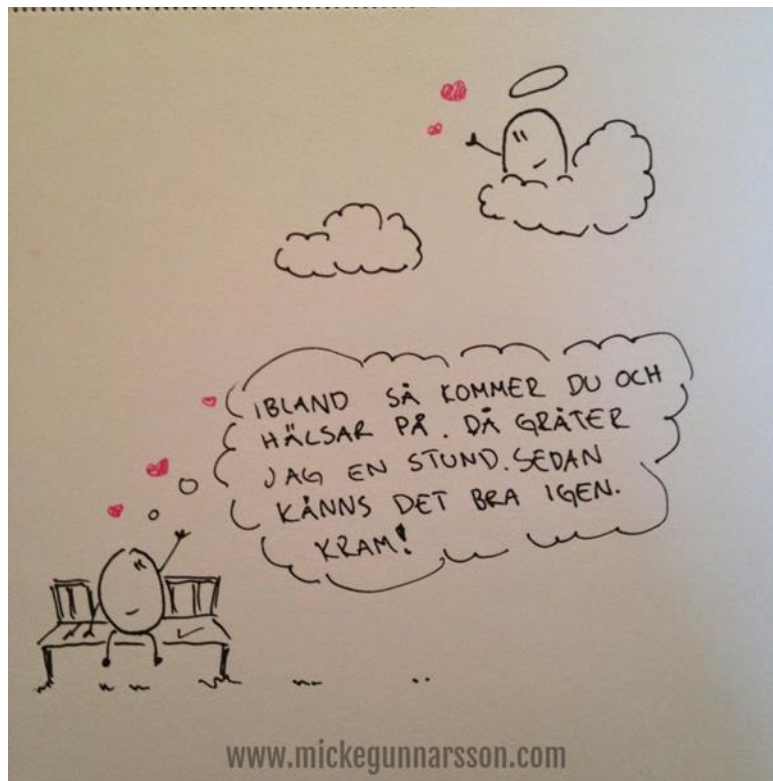 IBLAND SÅ KOMMER DU OCH
HÄLSAR PÅ. DÅ GRÅTER
JAG EN STUND. SEDAN
KÄNNS DET BRA IGEN.
KRAM!
www.mickegunnarsson.com